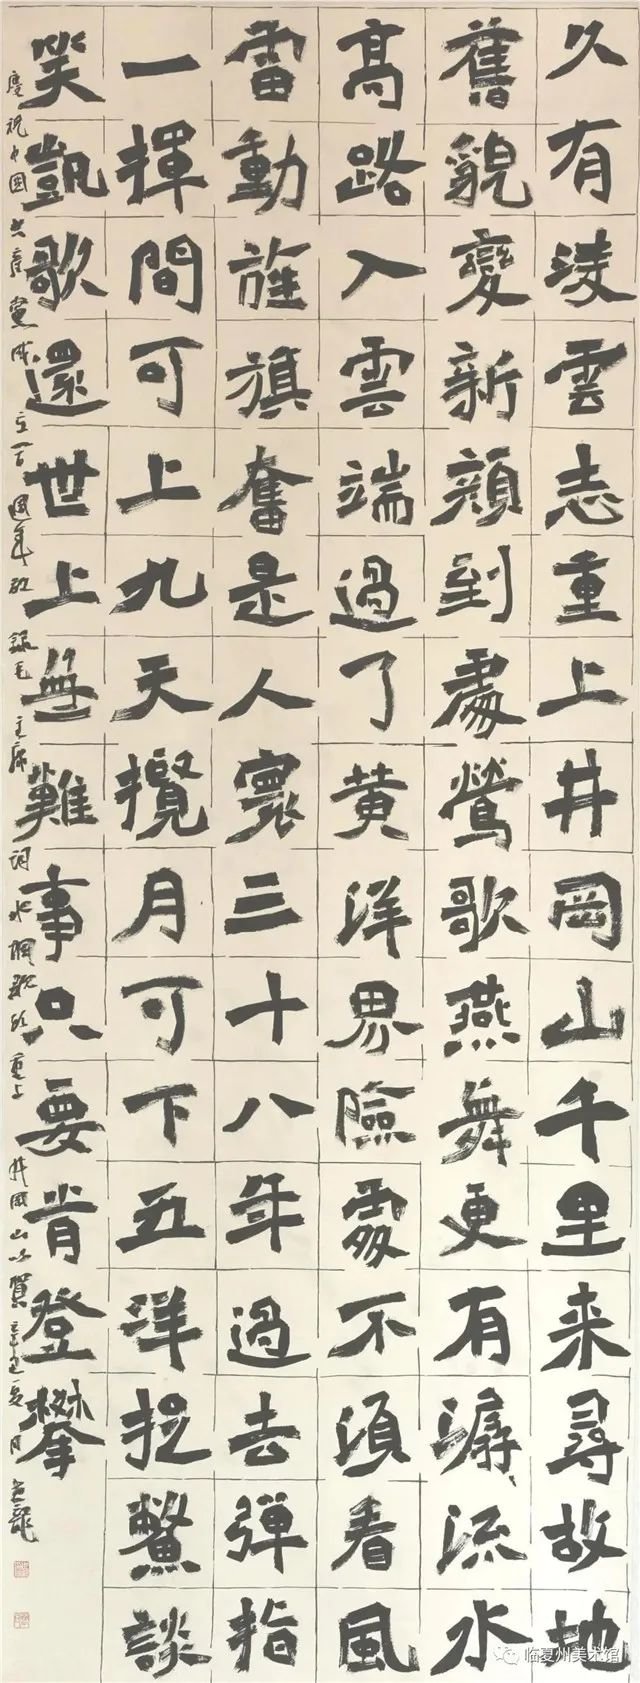 久有淩雲志重上井岡山千里来尋故地
舊貌變新顏到處鶯歌燕舞更有潺流水
髙路入雲端過了黄洋界險處不須看風
雷動旌旗奮是人寰三十八年過去弹指
一揮間可上九天攬月可下五洋捉鱉談
笑凱歌還世上無難事只要肯登攀
慶祝中國共產黨成立一百週年敬錄毛主席詞水調歌頭重上井岡山以賀辛丑夏月
临夏州美术馆